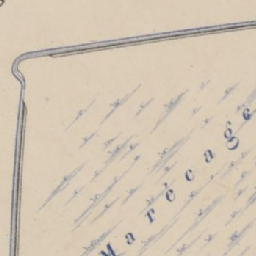 Marécage